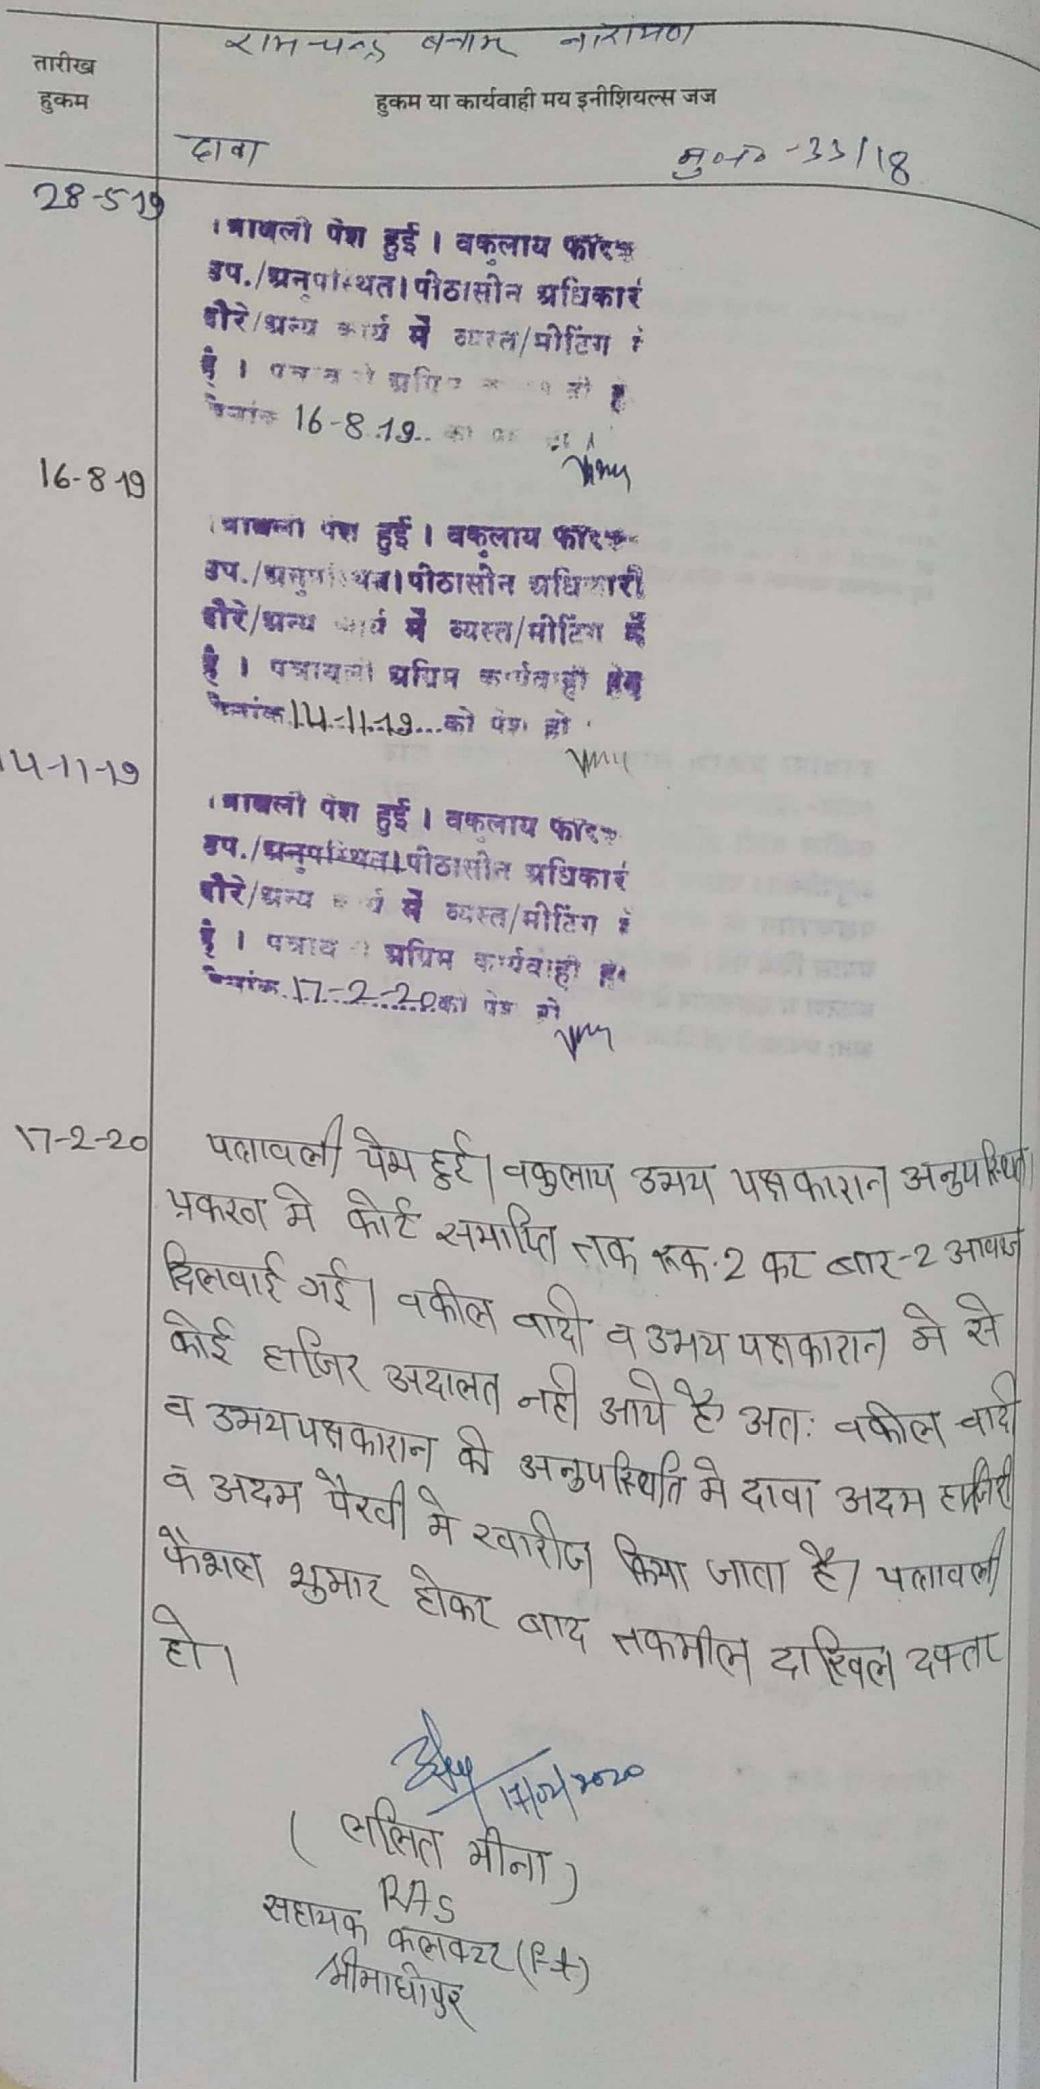 रामचन्द्र बनाम नारायण
तारीख
हुकम
हुकम या कार्यवाही मय इनीशियल्स जज
दावा
मु०न० -33/18
28-5-19
पत्रावली पेश हुई । वकुलाय फरिक
उप./अनुपस्थित।पीठासीन अधिकारी
दौरे/अन्य कार्य में व्यस्त/मीटिंग में
है । पत्रावली अग्रिम
दिनांक 16-8-19.. को पेश हो ।
16-8-19
पत्रावली पेश हुई । वकुलाय फरिक
उप./अनुपस्थित।पीठासीन अधिकारी
दौरे/अन्य कार्य में व्यस्त/मीटिंग में
है । पत्रावली अग्रिम कार्यवाही हेतु
दिनांक 14-11-19...को पेश हो
14-11-19
पत्रावली पेश हुई । वकुलाय फरिक
उप./अनुपस्थित।पीठासीन अधिकारी
दौरे/अन्य कार्य में व्यस्त/मीटिंग में
है । पत्रावली अग्रिम कार्यवाही हेतु
दिनांक 17-2-20 को पेश हो
17-2-20
पत्रावली पेश हुई। वकुलाय उभय पक्षकारान अनुपस्थित।
प्रकरण मे कोर्ट समाप्ति तक रूक-2 कर बार-2 आवाज
दिलवाई गई। वकील वादी व उभय पक्षकारान मे से
कोई हाजिर अदालत नही आये है अतः वकील वादी
व उभयपक्षकारान की अनुपस्थिति मे दावा अदम हाजिरी
व अदम पैरवी मे खारीज किया जाता है। पत्रावली
फैशल शुमार होकर बाद तकमील दाखिल दफ्तर
हो।
17/02/2020
( ललित मीना )
RAS
सहायक कलक्टर (F.T)
श्रीमाधोपुर